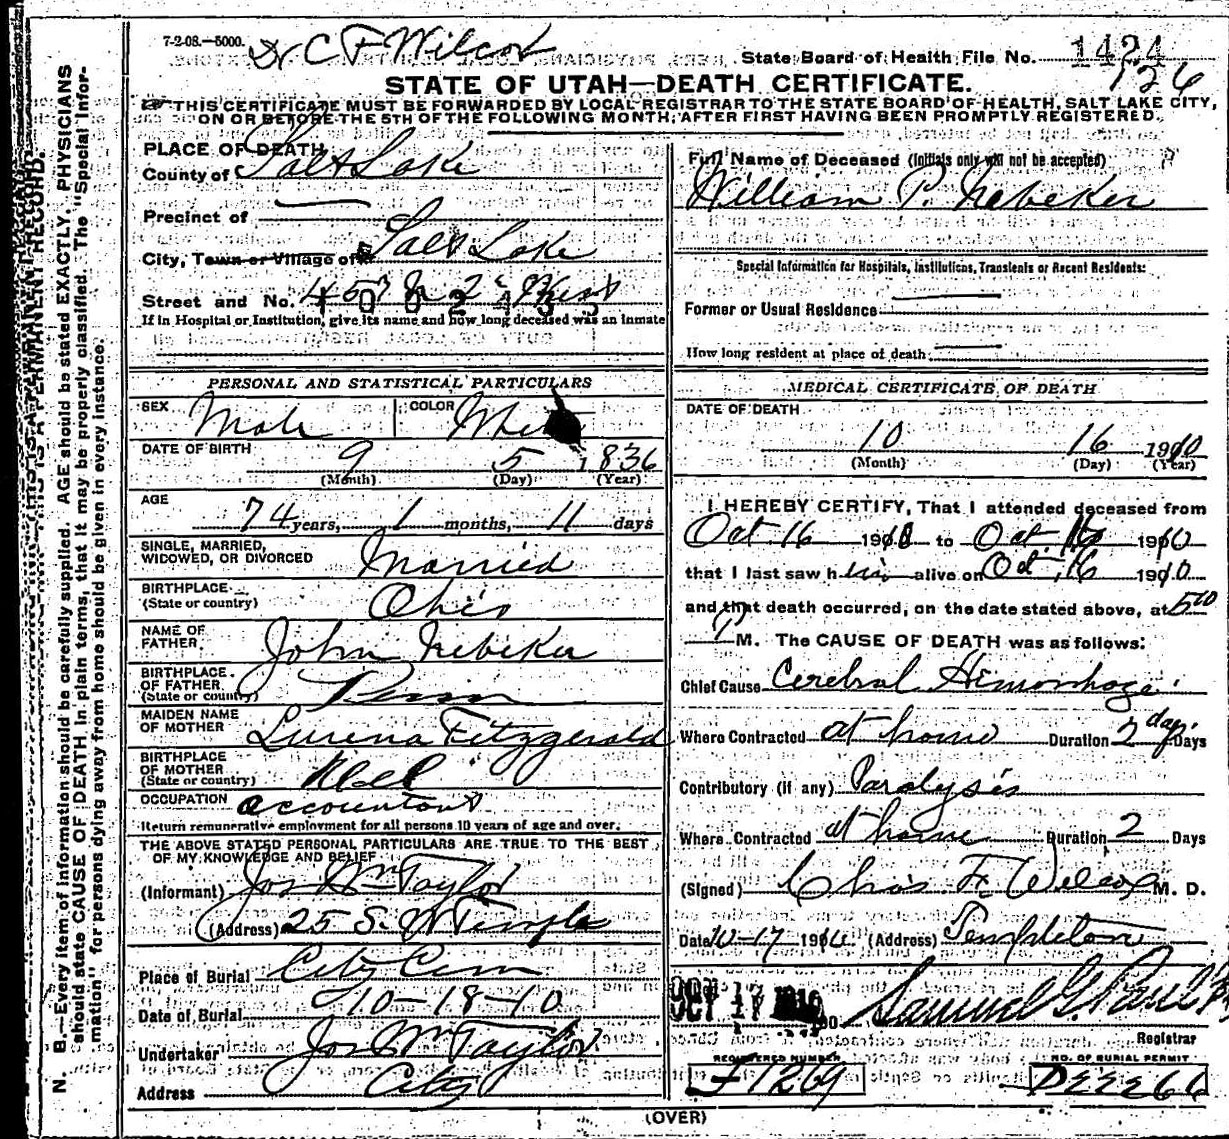 7-2-08.—5000.
Dr C F Wilcox
State Board of Health File No. 1424
126
STATE OF UTAH—DEATH CERTIFICATE.
THIS CERTIFICATE MUST BE FORWARDED BY LOCAL REGISTRAR TO THE STATE BOARD OF HEALTH, SALT LAKE CITY,
ON OR BEFORE THE 5TH OF THE FOLLOWING MONTH, AFTER FIRST HAVING BEEN PROMPTLY REGISTERED.
N. B.—Every item of information should be carefully supplied. AGE should be stated EXACTLY. PHYSICIANS
should state CAUSE OF DEATH in plain terms, that it may be properly classified. The "Special Infor-
mation" for persons dying away from home should be given in every instance.
PERMANENT RECORD.
PLACE OF DEATH
County of Salt Lake
Precinct of
City, Town or Village of Salt Lake
Street and No. 457
If in Hospital or Institution, give its name and how long deceased was an inmate
PERSONAL AND STATISTICAL PARTICULARS
SEX Male COLOR
DATE OF BIRTH 9 5 1836
(Month) (Day) (Year)
AGE
74 years, 1 months, 11 days
SINGLE, MARRIED,
WIDOWED, OR DIVORCED Married
BIRTHPLACE
(State or country) Ohio
NAME OF
FATHER John Nebeker
BIRTHPLACE
OF FATHER
(State or country)
MAIDEN NAME
OF MOTHER Lurena Fitzgerald
BIRTHPLACE
OF MOTHER
(State or country)
OCCUPATION accountant
Return remunerative employment for all persons 10 years of age and over.
THE ABOVE STATED PERSONAL PARTICULARS ARE TRUE TO THE BEST
OF MY KNOWLEDGE AND BELIEF
(Informant) Jos Wm Taylor
(Address) 25 S. W Temple
Place of Burial City Cem
Date of Burial 10-18-10
Undertaker Jos Wm Taylor
Address City
Full Name of Deceased (Initials only will not be accepted)
William P. Nebeker
Special Information for Hospitals, Institutions, Transients or Recent Residents:
Former or Usual Residence
How long resident at place of death
MEDICAL CERTIFICATE OF DEATH
DATE OF DEATH
10 16 1910
(Month) (Day) (Year)
I HEREBY CERTIFY, That I attended deceased from
Oct. 16 1910 to Oct. 16 1910
that I last saw him alive on Oct. 16 1910
and that death occurred, on the date stated above, at 5 00
M. The CAUSE OF DEATH was as follows:
Chief Cause Cerebral Hemorrhage.
Where Contracted at home Duration 2 days. Days
Contributory (if any) Paralysis
Where Contracted at home Duration 2 Days
(Signed) Chas F. Wilcox M. D.
Date 10-17 1910 (Address) Templeton
OCT 17 1910 Samuel G. Paul
Registrar
REGISTERED NUMBER NO. OF BURIAL PERMIT
F1269
(OVER)